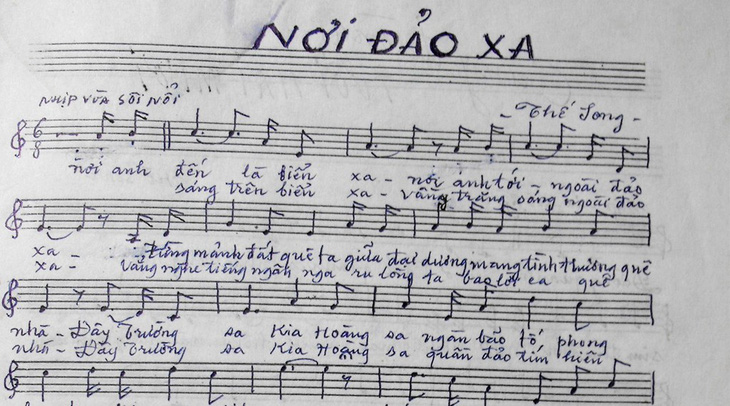 NƠI ĐẢO XA
NHỊP VỪA SÔI NỔI
- Thế Song -
6
8
nơi anh đến là biển xa - nơi anh tới ngoài đảo
sáng trên biển xa - vầng trăng sáng ngoài đảo
xa - từng mảnh đất quê ta giữa đại dương mang tình thương quê
xa - vẳng nghe tiếng ngân nga ru lòng ta bao lời ca quê
nhà - Đây Trường sa Kia Hoàng sa ngàn bão tố phong
nhà - Đây Trường sa Kia Hoàng sa quần đảo tím biển